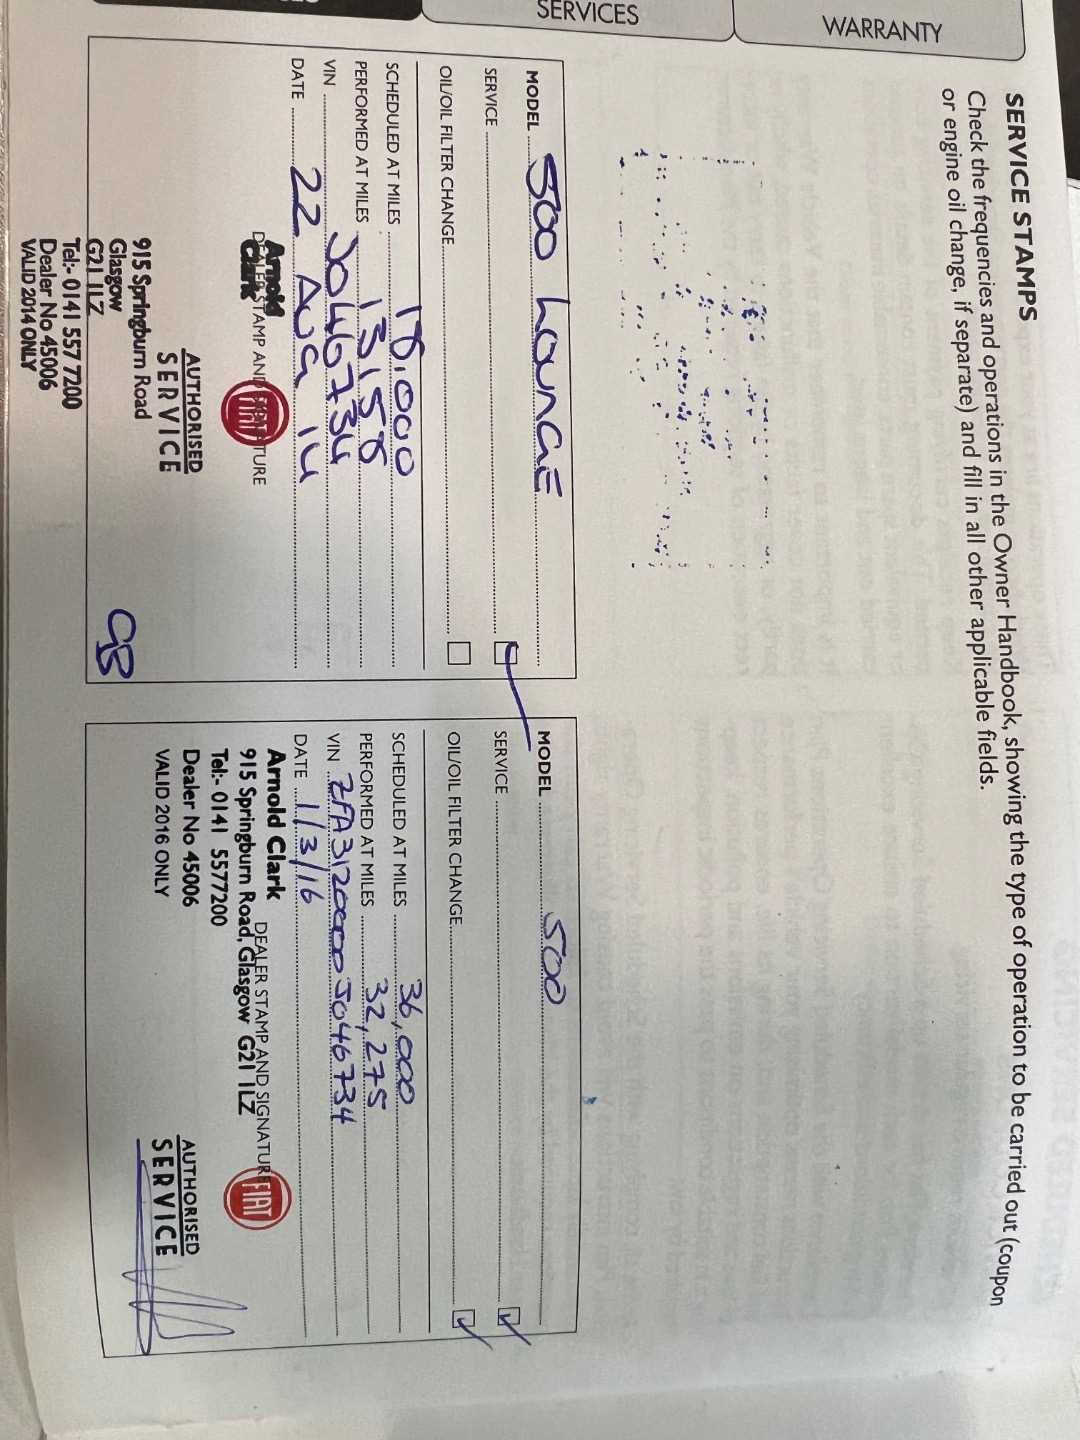 SERVICES
WARRANTY
SERVICE STAMPS
Check the frequencies and operations in the Owner Handbook, showing the type of operation to be carried out (coupon
or engine oil change, if separate) and fill in all other applicable fields.
MODEL 500 LOUNGE
SERVICE
OIL/OIL FILTER CHANGE
SCHEDULED AT MILES 18.000
PERFORMED AT MILES 13158
VIN J046734
DATE 22 AUG 14
DEALER STAMP AND SIGNATURE
Arnold
Clark
FIAT
AUTHORISED
SERVICE
915 Springburn Road
Glasgow
G21 1LZ
Tel:- 0141 557 7200
Dealer No 45006
VALID 2014 ONLY
MODEL 500
SERVICE
OIL/OIL FILTER CHANGE
SCHEDULED AT MILES 36,000
PERFORMED AT MILES 32,275
VIN ZFA3120000J046734
DATE 1/3/16
DEALER STAMP AND SIGNATURE
Arnold Clark
915 Springburn Road, Glasgow G21 1LZ
Tel:- 0141 5577200
Dealer No 45006
VALID 2016 ONLY
FIAT
AUTHORISED
SERVICE